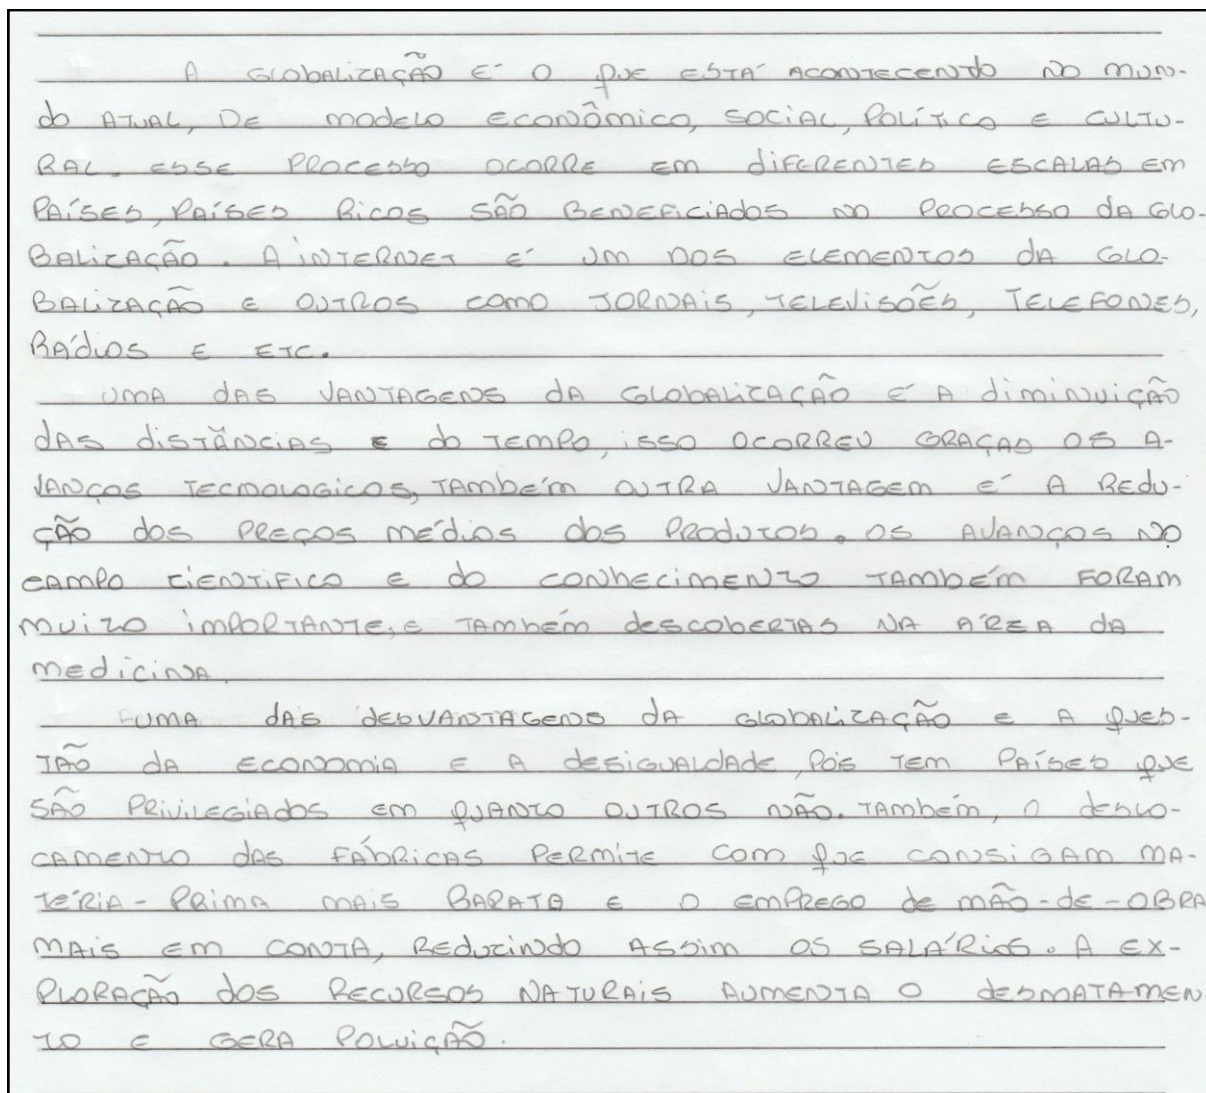 A GLOBALIZAÇÃO É O QUE ESTÁ ACONTECENDO NO MUN-
DO ATUAL, DE MODELO ECONÔMICO, SOCIAL, POLÍTICO E CULTU-
RAL. ESSE PROCESSO OCORRE EM DIFERENTES ESCALAS EM
PAÍSES, PAÍSES RICOS SÃO BENEFICIADOS NO PROCESSO DA GLO-
BALIZAÇÃO. A INTERNET É UM DOS ELEMENTOS DA GLO-
BALIZAÇÃO E OUTROS COMO JORNAIS, TELEVISÕES, TELEFONES,
RÁDIOS E ETC.
UMA DAS VANTAGENS DA GLOBALIZAÇÃO É A DIMINUIÇÃO
DAS DISTÂNCIAS E DO TEMPO, ISSO OCORREU GRAÇAS OS A-
VANÇOS TECNOLOGICOS, TAMBÉM OUTRA VANTAGEM É A REDU-
ÇÃO DOS PREÇOS MÉDIOS DOS PRODUTOS. OS AVANÇOS NO
CAMPO CIENTIFICO E DO CONHECIMENTO TAMBÉM FORAM
MUITO IMPORTANTE, E TAMBÉM DESCOBERTAS NA ÁREA DA
MEDICINA.
UMA DAS DESVANTAGENS DA GLOBALIZAÇÃO E A QUES-
TÃO DA ECONOMIA E A DESIGUALDADE, POIS TEM PAÍSES QUE
SÃO PRIVILEGIADOS EM QUANTO OUTROS NÃO. TAMBÉM, O DESLO-
CAMENTO DAS FÁBRICAS PERMITE COM QUE CONSIGAM MA-
TÉRIA-PRIMA MAIS BARATA E O EMPREGO DE MÃO-DE-OBRA
MAIS EM CONTA, REDUZINDO ASSIM OS SALÁRIOS. A EX-
PLORAÇÃO DOS RECURSOS NATURAIS AUMENTA O DESMATAMEN
TO E GERA POLUIÇÃO.